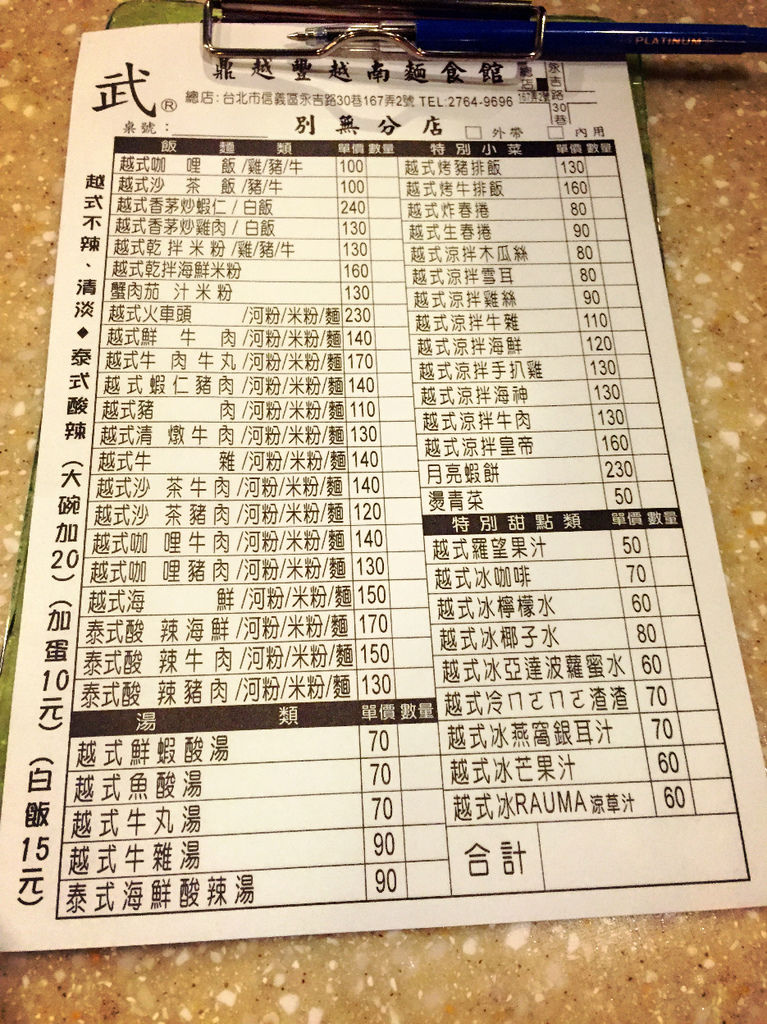 PLATINUM
鼎越豐越南麵食館
武®
總店:台北市信義區永吉路30巷167弄2號 TEL:2764-9696
總店 167弄2號 永吉路30巷
桌號: 別無分店 □外帶 □內用
越式不辣、清淡◆泰式酸辣(大碗加20)(加蛋10元)(白飯15元)
飯麵類 單價 數量
越式咖哩飯/雞/豬/牛 100
越式沙茶飯/豬/牛 100
越式香茅炒蝦仁/白飯 240
越式香茅炒雞肉/白飯 130
越式乾拌米粉/雞/豬/牛 130
越式乾拌海鮮米粉 160
蟹肉茄汁米粉 130
越式火車頭/河粉/米粉/麵 230
越式鮮牛肉/河粉/米粉/麵 140
越式牛肉牛丸/河粉/米粉/麵 170
越式蝦仁豬肉/河粉/米粉/麵 140
越式豬肉/河粉/米粉/麵 110
越式清燉牛肉/河粉/米粉/麵 130
越式牛雜/河粉/米粉/麵 140
越式沙茶牛肉/河粉/米粉/麵 140
越式沙茶豬肉/河粉/米粉/麵 120
越式咖哩牛肉/河粉/米粉/麵 140
越式咖哩豬肉/河粉/米粉/麵 130
越式海鮮/河粉/米粉/麵 150
泰式酸辣海鮮/河粉/米粉/麵 170
泰式酸辣牛肉/河粉/米粉/麵 150
泰式酸辣豬肉/河粉/米粉/麵 130
湯類 單價 數量
越式鮮蝦酸湯 70
越式魚酸湯 70
越式牛丸湯 70
越式牛雜湯 90
泰式海鮮酸辣湯 90
特別小菜 單價 數量
越式烤豬排飯 130
越式烤牛排飯 160
越式炸春捲 80
越式生春捲 90
越式涼拌木瓜絲 80
越式涼拌雪耳 80
越式涼拌雞絲 90
越式涼拌牛雜 110
越式涼拌海鮮 120
越式涼拌手扒雞 130
越式涼拌海神 130
越式涼拌牛肉 130
越式涼拌皇帝 160
月亮蝦餅 230
燙青菜 50
特別甜點類 單價 數量
越式羅望果汁 50
越式冰咖啡 70
越式冰檸檬水 60
越式冰椰子水 80
越式冰亞達波蘿蜜水 60
越式冷ㄇㄛㄇㄛ渣渣 70
越式冰燕窩銀耳汁 70
越式冰芒果汁 60
越式冰RAUMA涼草汁 60
合計